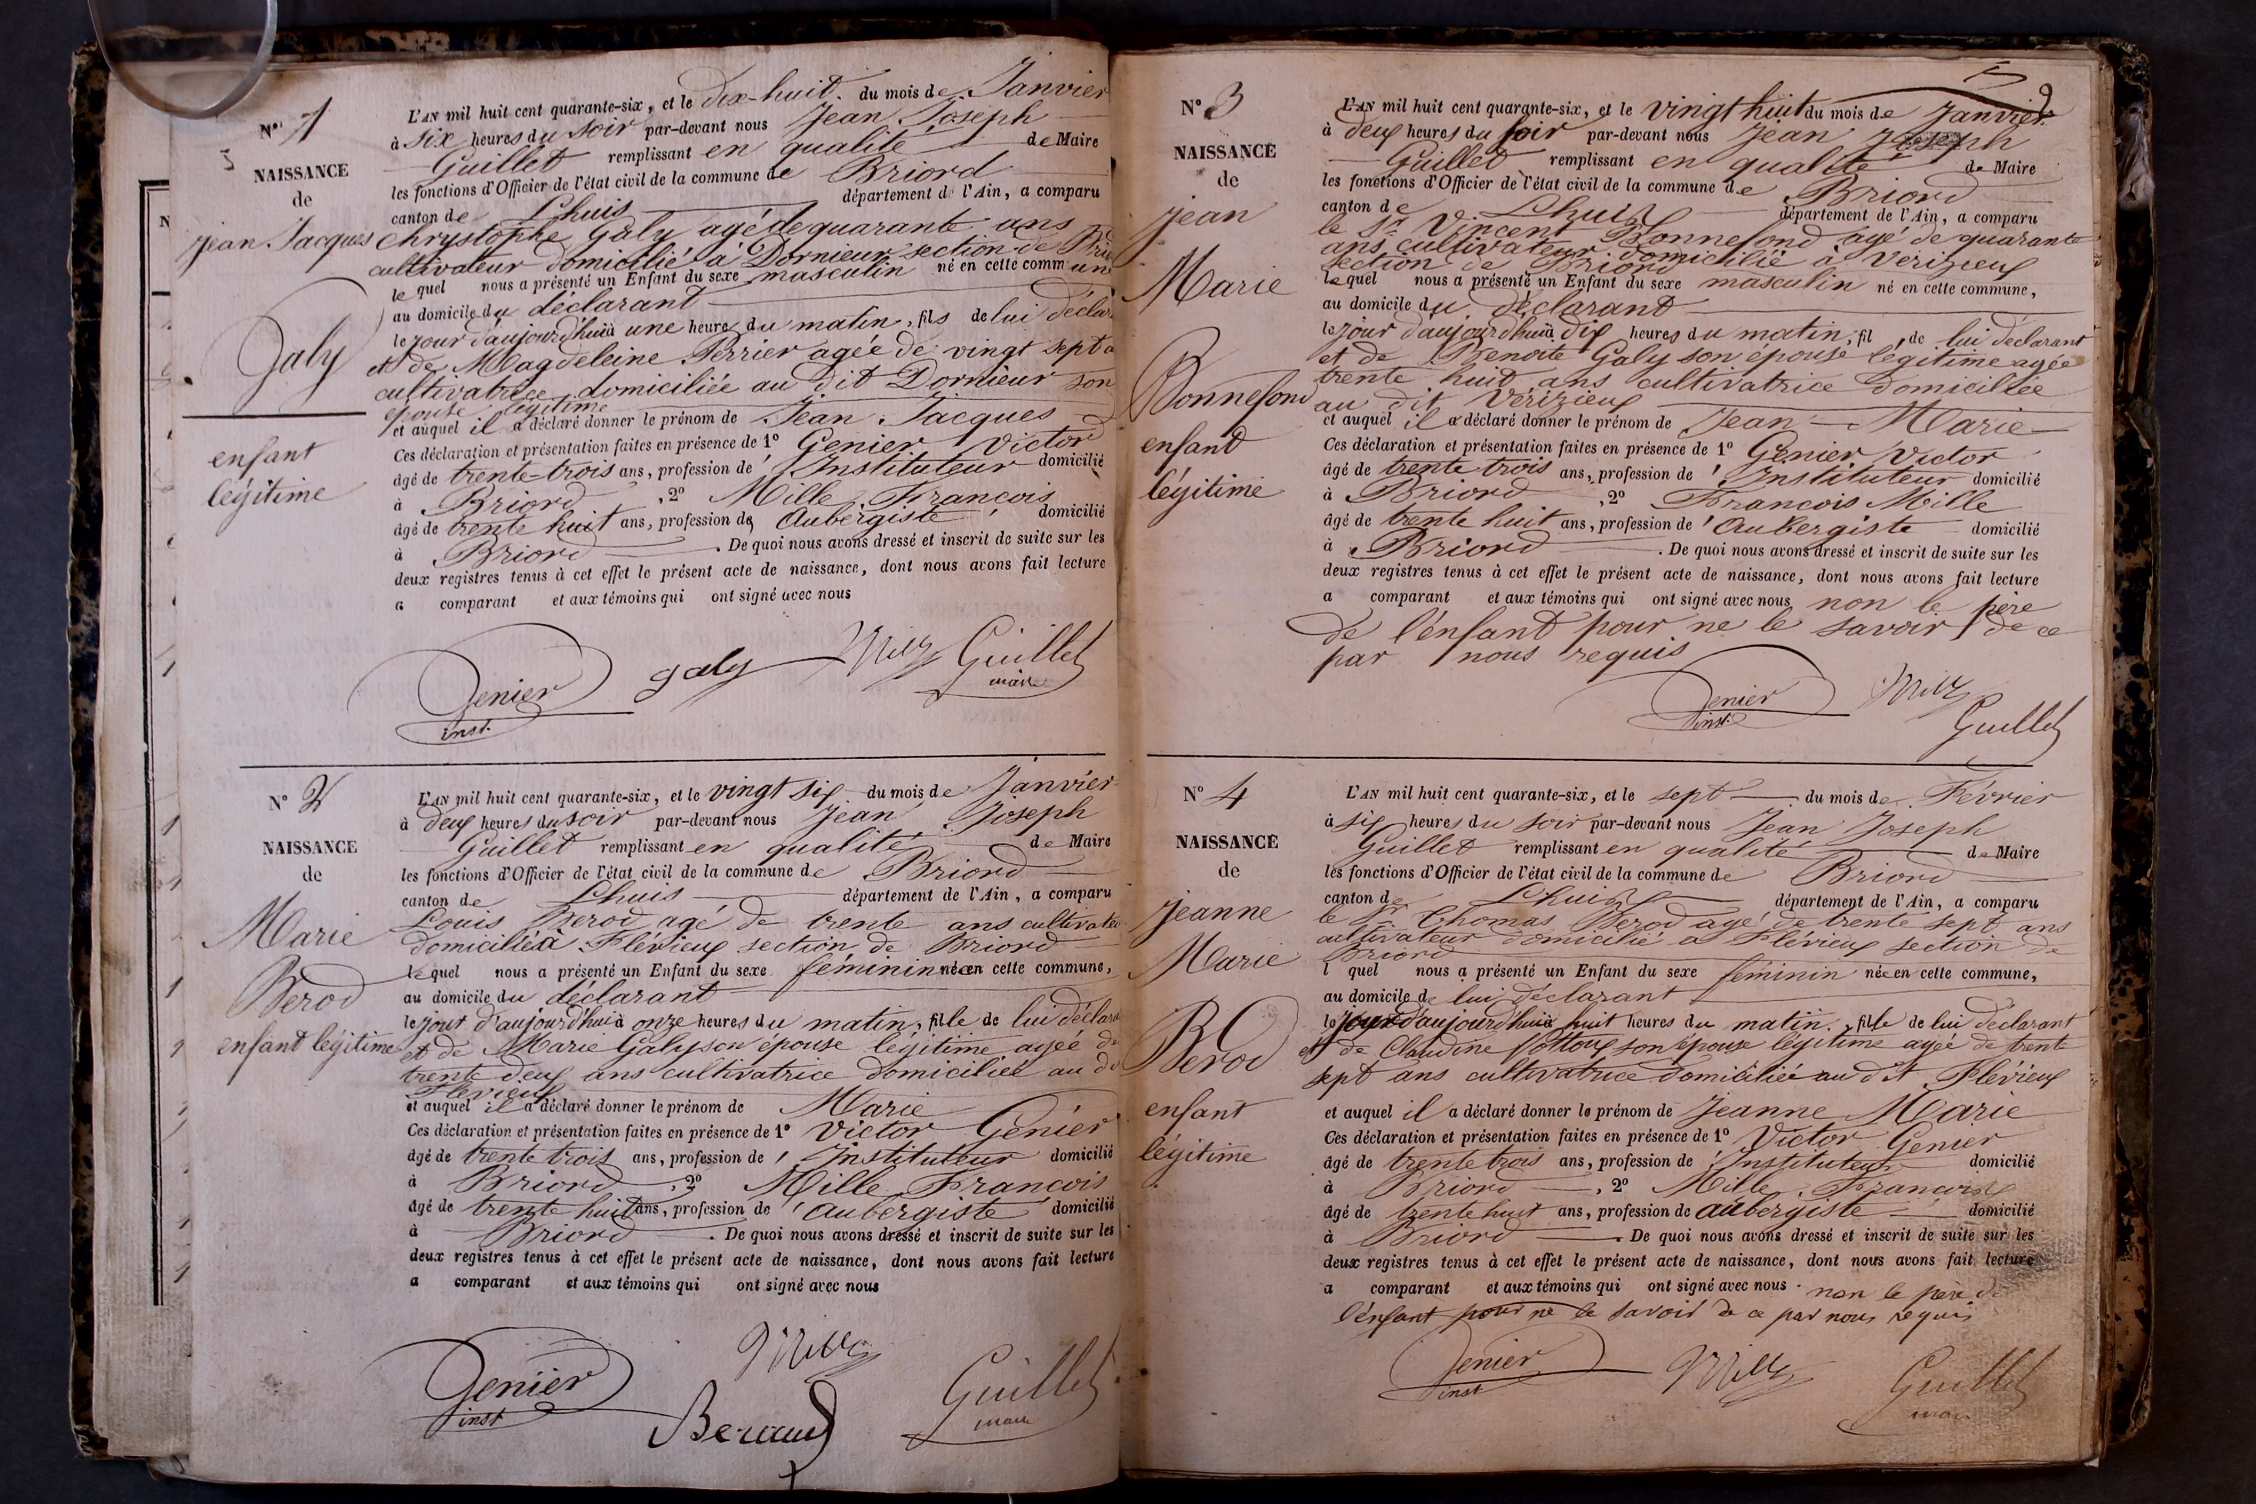 Nº 1
NAISSANCE
de
Jean Jacques
Galy
enfant
légitime
L'AN mil huit cent quarante-six, et le dix-huit du mois de Janvier
à six heures du soir par-devant nous Jean Joseph
Guillet remplissant en qualité de Maire
les fonctions d'Officier de l'état civil de la commune de Briord
canton de Lhuis département de l'Ain, a comparu
Chrystophe Galy agé de quarante ans
cultivateur domicilié à Dornieux section de
le quel nous a présenté un Enfant du sexe masculin né en cette commune
au domicile du déclarant
le jour d'aujourd'hui à une heure du matin, fils de lui
et de Magdeleine Perrier agée de vingt sept
cultivatrice domiciliée au dit Dornieux son
épouse légitime
et auquel il a déclaré donner le prénom de Jean Jacques
Ces déclaration et présentation faites en présence de 1º Genier Victor
âgé de trente-trois ans, profession d'Instituteur domicilié
à Briord, 2º Mille François
âgé de trente huit ans, profession de Aubergiste domicilié
à Briord. De quoi nous avons dressé et inscrit de suite sur les
deux registres tenus à cet effet le présent acte de naissance, dont nous avons fait lecture
a comparant et aux témoins qui ont signé avec nous
Genier galy Mille Guillet
inst. maire
Nº 2
NAISSANCE
de
Marie
Berod
enfant légitime
L'AN mil huit cent quarante-six, et le vingt six du mois de Janvier
à deux heures du soir par-devant nous Jean Joseph
Guillet remplissant en qualité de Maire
les fonctions d'Officier de l'état civil de la commune de Briord
canton de Lhuis département de l'Ain, a comparu
Louis Berod agé de trente ans
domicilié à Flévieux section de Briord
le quel nous a présenté un Enfant du sexe féminin née en cette commune,
au domicile du déclarant
le jour d'aujourd'hui à onze heures du matin, fille de lui
et de Marie Galy son épouse légitime agée de
trente deux ans cultivatrice domiciliée au
Flévieux
et auquel il a déclaré donner le prénom de Marie
Ces déclaration et présentation faites en présence de 1º Victor Génier
âgé de trente trois ans, profession d'Instituteur domicilié
à Briord, 2º Mille François
âgé de trente huit ans, profession d'aubergiste domicilié
à Briord. De quoi nous avons dressé et inscrit de suite sur les
deux registres tenus à cet effet le présent acte de naissance, dont nous avons fait lecture
a comparant et aux témoins qui ont signé avec nous
Genier Mille Guillet
inst maire
Beraud
Nº 3
NAISSANCE
de
Jean
Marie
Bonnefond
enfant
légitime
L'AN mil huit cent quarante-six, et le vingt huit du mois de Janvier
à deux heures du soir par-devant nous Jean Joseph
Guillet remplissant en qualité de Maire
les fonctions d'Officier de l'état civil de la commune de Briord
canton de Lhuis département de l'Ain, a comparu
le Sr Vincent Bonnefond agé de quarante
ans cultivateur domicilié à Verizieux
section de Briord
le quel nous a présenté un Enfant du sexe masculin né en cette commune,
au domicile du déclarant
le jour d'aujourd'hui à dix heures du matin, fil de lui déclarant
et de Benoite Galy son épouse légitime agée
trente huit ans cultivatrice domiciliée
au dit Vérizieux
et auquel il a déclaré donner le prénom de Jean-Marie
Ces déclaration et présentation faites en présence de 1º Génier Victor
âgé de trente trois ans, profession d'Instituteur domicilié
à Briord, 2º François Mille
âgé de trente huit ans, profession d'Aubergiste domicilié
à Briord. De quoi nous avons dressé et inscrit de suite sur les
deux registres tenus à cet effet le présent acte de naissance, dont nous avons fait lecture
a comparant et aux témoins qui ont signé avec nous non le père
de l'énfant pour ne le savoir de ce
par nous requis
Genier Mille
inst. Guillet
Nº 4
NAISSANCE
de
Jeanne
Marie
Berod
enfant
légitime
L'AN mil huit cent quarante-six, et le sept du mois de Février
à six heures du soir par-devant nous Jean Joseph
Guillet remplissant en qualité de Maire
les fonctions d'Officier de l'état civil de la commune de Briord
canton de Lhuis département de l'Ain, a comparu
le Sr Thomas Berod agé de trente sept ans
cultivateur domicilié à Flévieux section de
Briord
l quel nous a présenté un Enfant du sexe féminin née en cette commune,
au domicile de lui déclarant
le jour d'aujourd'hui à huit heures du matin, fille de lui déclarant
et de Claudine son épouse légitime agée de trente
sept ans cultivatrice domiciliée au dit Flévieux
et auquel il a déclaré donner le prénom de Jeanne Marie
Ces déclaration et présentation faites en présence de 1º Victor Genier
âgé de trente trois ans, profession d'Instituteur domicilié
à Briord, 2º Mille François
âgé de trente huit ans, profession de aubergiste domicilié
à Briord. De quoi nous avons dressé et inscrit de suite sur les
deux registres tenus à cet effet le présent acte de naissance, dont nous avons fait lecture
a comparant et aux témoins qui ont signé avec nous non le père de
l'énfant pour ne le savoir de ce par nous requis
Genier Mille Guillet
inst maire